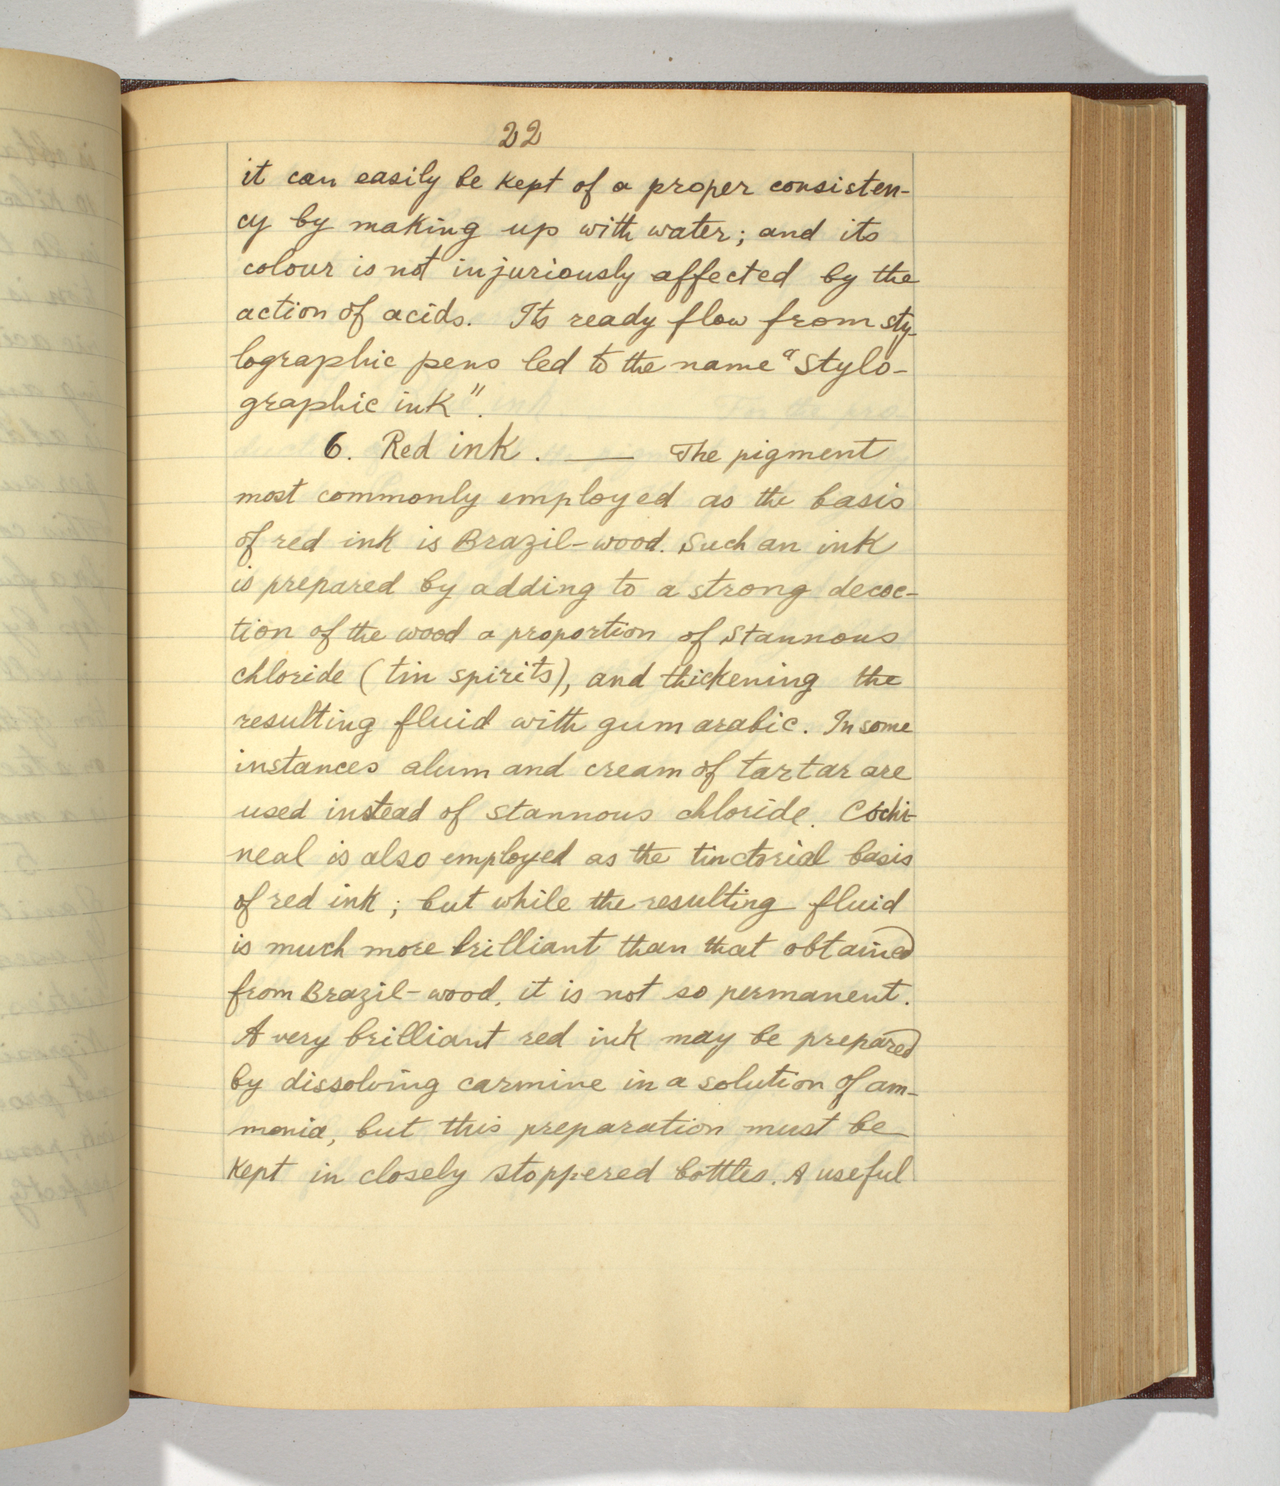 22
it can easily be kept of a proper consisten-
cy by making up with water; and its
colour is not injuriously affected by the
action of acids. Its ready flow from sty-
lographic pens led to the name "Stylo-
graphic ink".
6. Red ink. — The pigment
most commonly employed as the basis
of red ink is Brazil-wood. Such an ink
is prepared by adding to a strong decoc-
tion of the wood a proportion of stannous
chloride (tin spirits), and thickening the
resulting fluid with gum arabic. In some
instances alum and cream of tartar are
used instead of stannous chloride. Cochi-
neal is also employed as the tinctorial basis
of red ink; but while the resulting fluid
is much more brilliant than that obtained
from Brazil-wood, it is not so permanent.
A very brilliant red ink may be prepared
by dissolving carmine in a solution of am-
monia, but this preparation must be
kept in closely stoppered bottles. A useful